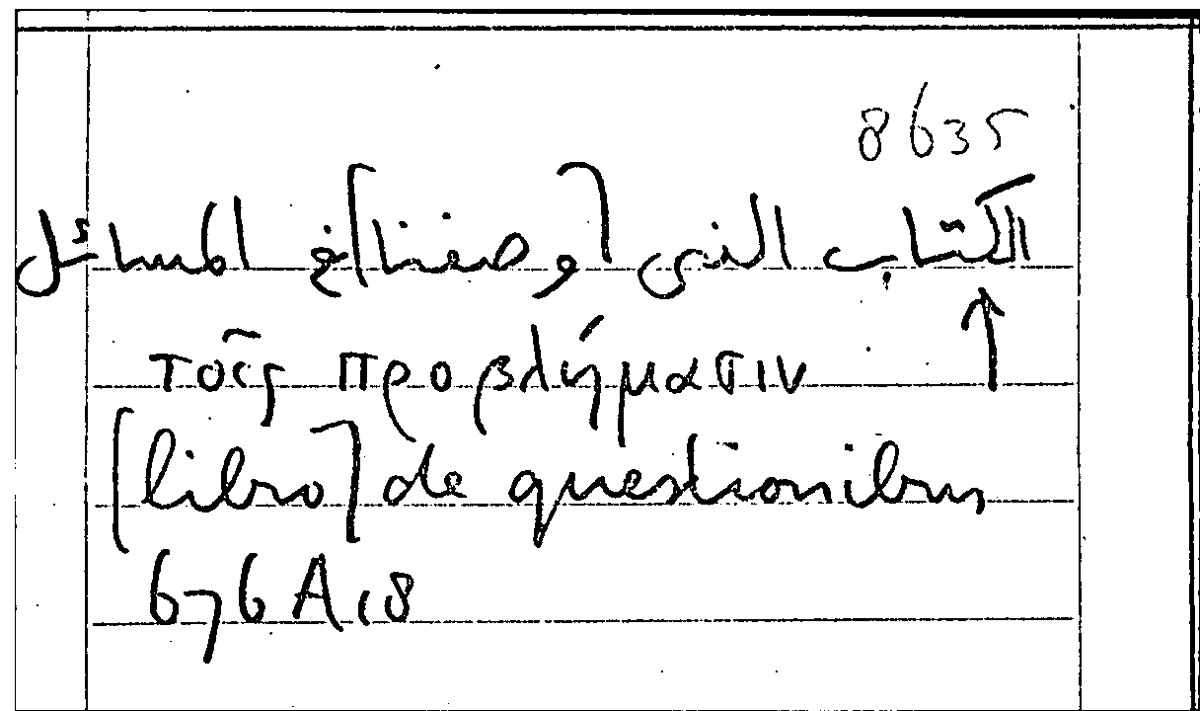 8635
الكتاب الذى [وضعناه] فى المسائل
τοῖς προβλήμασιν ↑
[libro] de questionibus
676 A 18